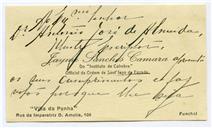 Ao Exmo Senhor
Antonio José de Almeida,
Muito
Jayme Sanches Camara apresenta
Do "Instituto de Coimbra"
Official da Ordem de Sant'Iago da Espada
os seus cumprimentos e faz
votos
"Villa da Penha"
Rua da Imperatriz D. Amelia, 106
Funchal